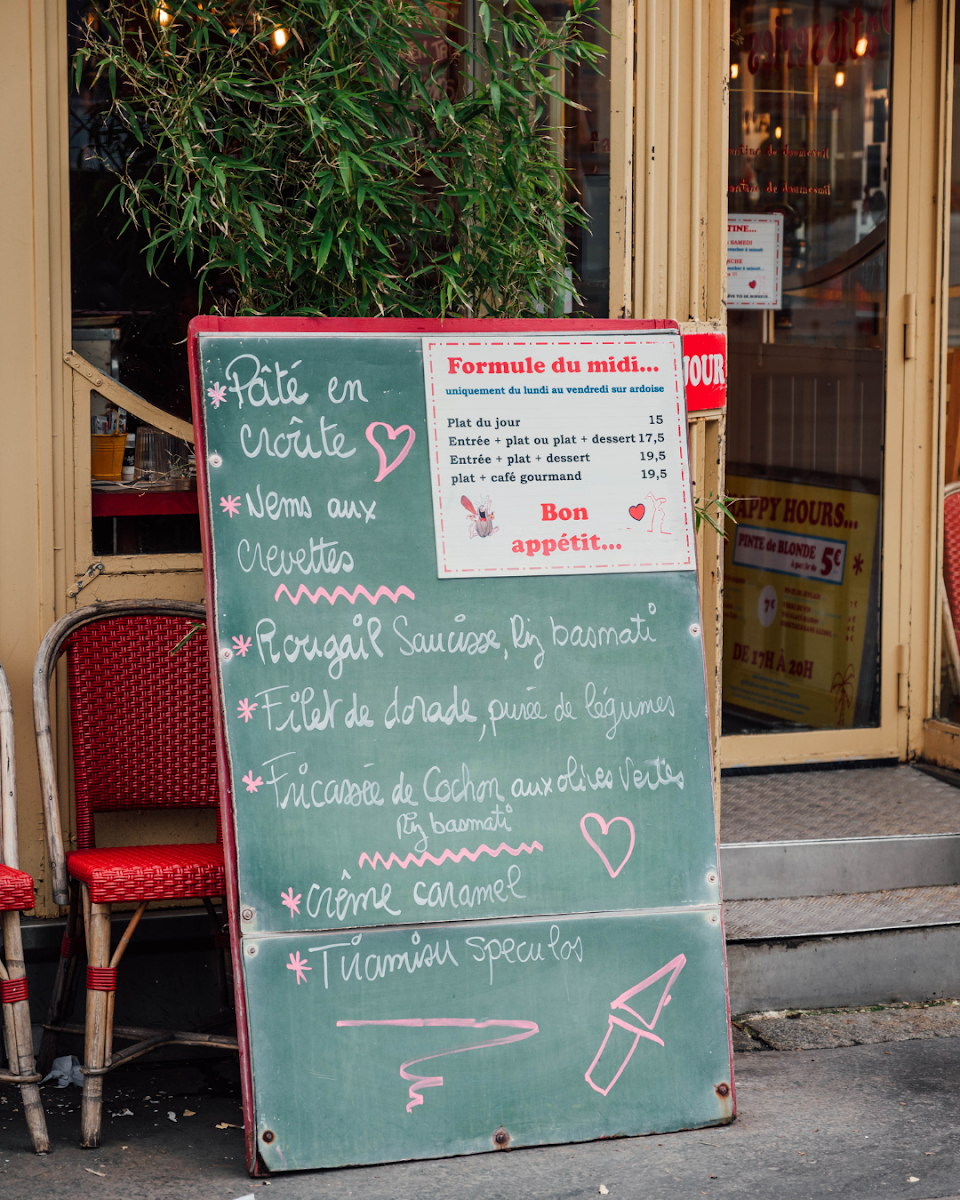 Pâté en
croûte
Nems aux
crevettes
Rougail Saucisse, Riz basmati
Filet de dorade, purée de légumes
Fricassée de Cochon aux olives vertes
Riz basmati
crème caramel
Tiramisu speculos
Formule du midi...
uniquement du lundi au vendredi sur ardoise
Plat du jour 15
Entrée + plat ou plat + dessert 17,5
Entrée + plat + dessert 19,5
plat + café gourmand 19,5
Bon
appétit...
JOUR
TINE...
SAMEDI
HAPPY HOURS...
PINTE de BLONDE 5€
à partir de
7€
DE 17H À 20H